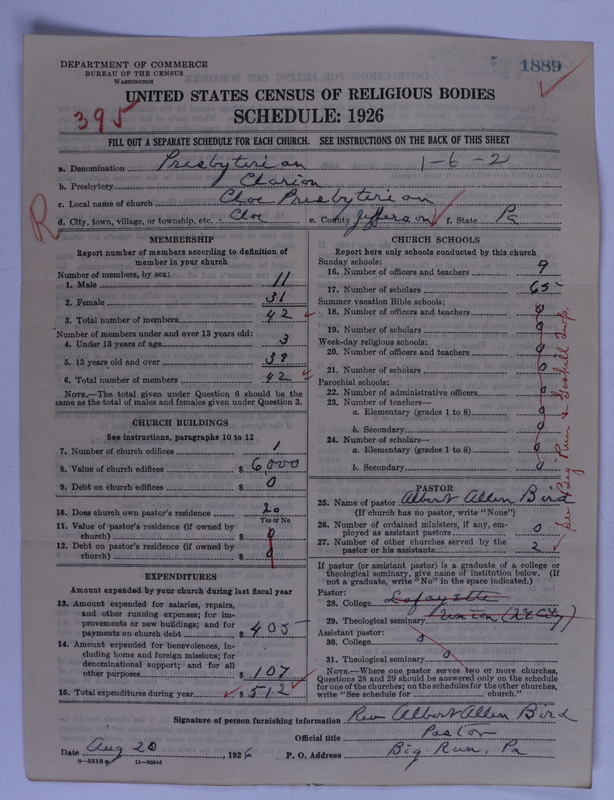 DEPARTMENT OF COMMERCE
BUREAU OF THE CENSUS
WASHINGTON
1889
UNITED STATES CENSUS OF RELIGIOUS BODIES
395
SCHEDULE: 1926
FILL OUT A SEPARATE SCHEDULE FOR EACH CHURCH. SEE INSTRUCTIONS ON THE BACK OF THIS SHEET
a. Denomination Presbyterian 1-6-2
b. Presbytery Clarion
c. Local name of church Cloe Presbyterian
R
d. City, town, village, or township, etc. Cloe e. County Jefferson f. State Pa
MEMBERSHIP
Report number of members according to definition of
member in your church
Number of members, by sex:
1. Male 11
2. Female 31
3. Total number of members 42
Number of members under and over 13 years old:
4. Under 13 years of age 3
5. 13 years old and over 39
6. Total number of members 42
NOTE.—The total given under Question 6 should be
same as the total of males and females given under Question 3.
CHURCH BUILDINGS
See instructions, paragraphs 10 to 12
7. Number of church edifices 1
8. Value of church edifices $ 6,000
9. Debt on church edifices $ 0
10. Does church own pastor's residence? no
Yes or No
11. Value of pastor's residence (if owned by
church) $ 0
12. Debt on pastor's residence (if owned by
church) $ 0
EXPENDITURES
Amount expended by your church during last fiscal year
13. Amount expended for salaries, repairs,
and other running expenses; for im-
provements or new buildings; and for
payments on church debt $ 405
14. Amount expended for benevolences, in-
cluding home and foreign missions; for
denominational support; and for all
other purposes $ 107
15. Total expenditures during year $ 512
CHURCH SCHOOLS
Report here only schools conducted by this church
Sunday schools:
16. Number of officers and teachers 9
17. Number of scholars 65
Summer vacation Bible schools:
18. Number of officers and teachers 0
19. Number of scholars 0
Week-day religious schools:
20. Number of officers and teachers 0
21. Number of scholars 0
Parochial schools:
22. Number of administrative officers 0
23. Number of teachers—
a. Elementary (grades 1 to 8) 0
b. Secondary 0
24. Number of scholars—
a. Elementary (grades 1 to 8) 0
b. Secondary 0
See Big Run &
PASTOR
25. Name of pastor Albert Allen Bird
(If church has no pastor, write "None")
26. Number of ordained ministers, if any, em-
ployed as assistant pastors 0
27. Number of other churches served by the
pastor or his assistants 2
If pastor (or assistant pastor) is a graduate of a college or
theological seminary, give name of institution below. (If
not a graduate, write "No" in the space indicated.)
Pastor:
28. College Lafayette
29. Theological seminary Union (N.Y. City)
Assistant pastor:
30. College 0
31. Theological seminary 0
NOTE.—Where one pastor serves two or more churches,
Questions 28 and 29 should be answered only on the schedule
for one of the churches; on the schedules for the other churches,
write "See schedule for church."
Signature of person furnishing information Rev Albert Allen Bird
Official title Pastor
Date Aug 20, 1926 P. O. Address Big Run, Pa